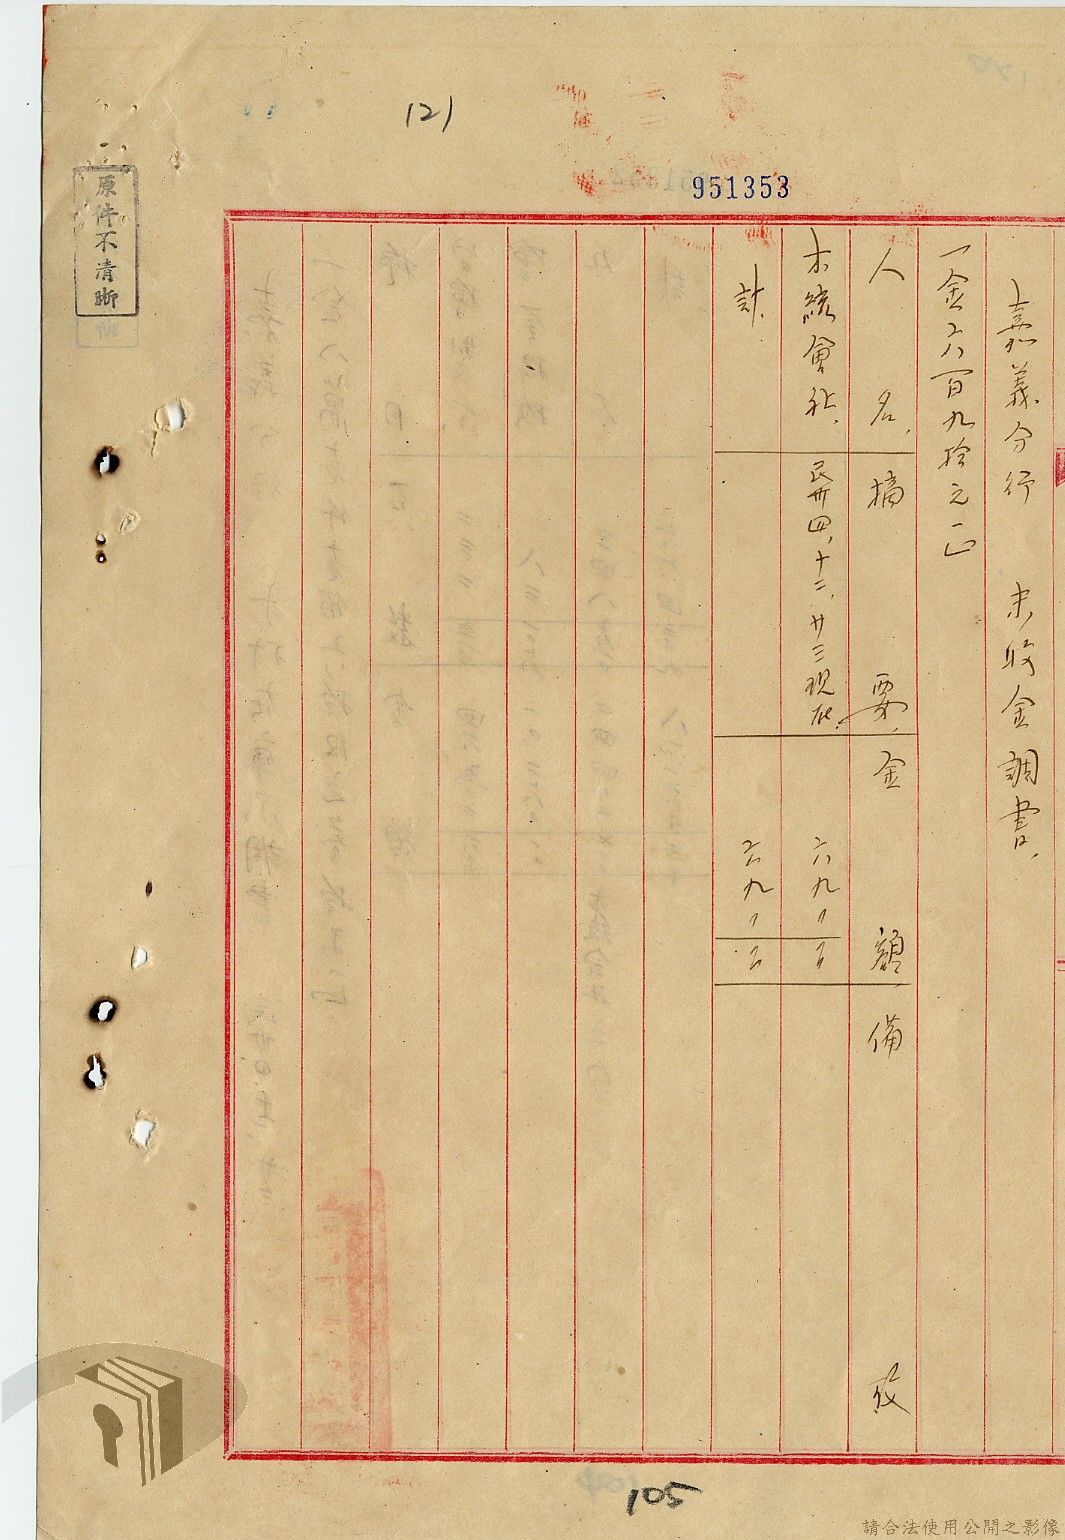 (2)
951353
原件不清晰
嘉義分行 未收金調書.
一金六百九拾元一正
人名. 摘要. 金額 備考
木統會社. 民卅四,十二,廿三現在. 六九〇〇〇
計. 六九〇〇〇
105
請合法使用公開之影像